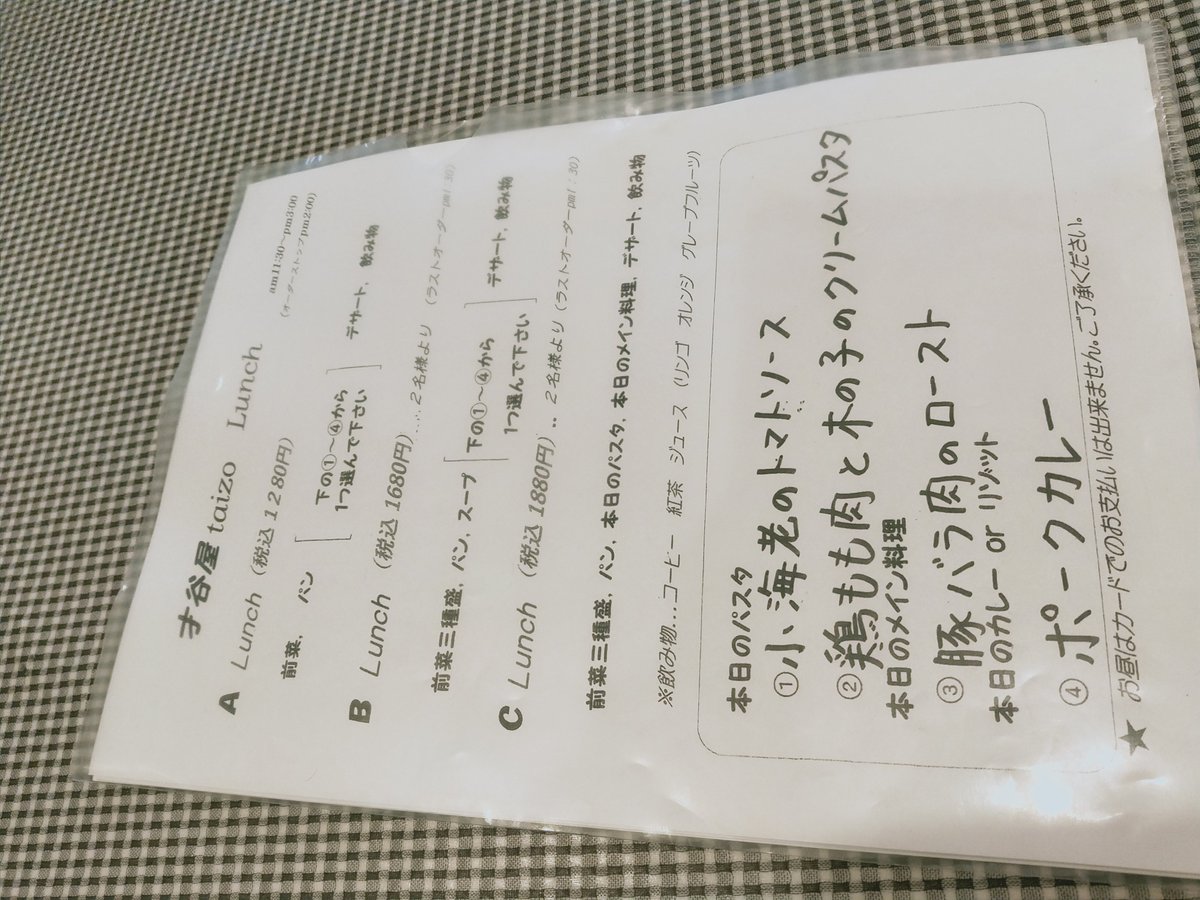 才谷屋 taizo Lunch
am11:30～pm3:00
(オーダーストップpm2:00)
A Lunch (税込 1280円)
前菜、 パン [下の①～④から 1つ選んで下さい] デザート、飲み物
B Lunch (税込 1680円)....2名様より (ラストオーダーpm1:30)
前菜三種盛、パン、スープ [下の①～④から 1つ選んで下さい] デザート、飲み物
C Lunch (税込 1880円).. 2名様より (ラストオーダーpm1:30)
前菜三種盛、パン、本日のパスタ、本日のメイン料理、デザート、飲み物
※飲み物...コーヒー 紅茶 ジュース (リンゴ オレンジ グレープフルーツ)
本日のパスタ
①小海老のトマトソース
②鶏もも肉と木の子のクリームパスタ
本日のメイン料理
③豚バラ肉のロースト
本日のカレー or リゾット
④ポークカレー
★お昼はカードでのお支払いは出来ません。ご了承ください。